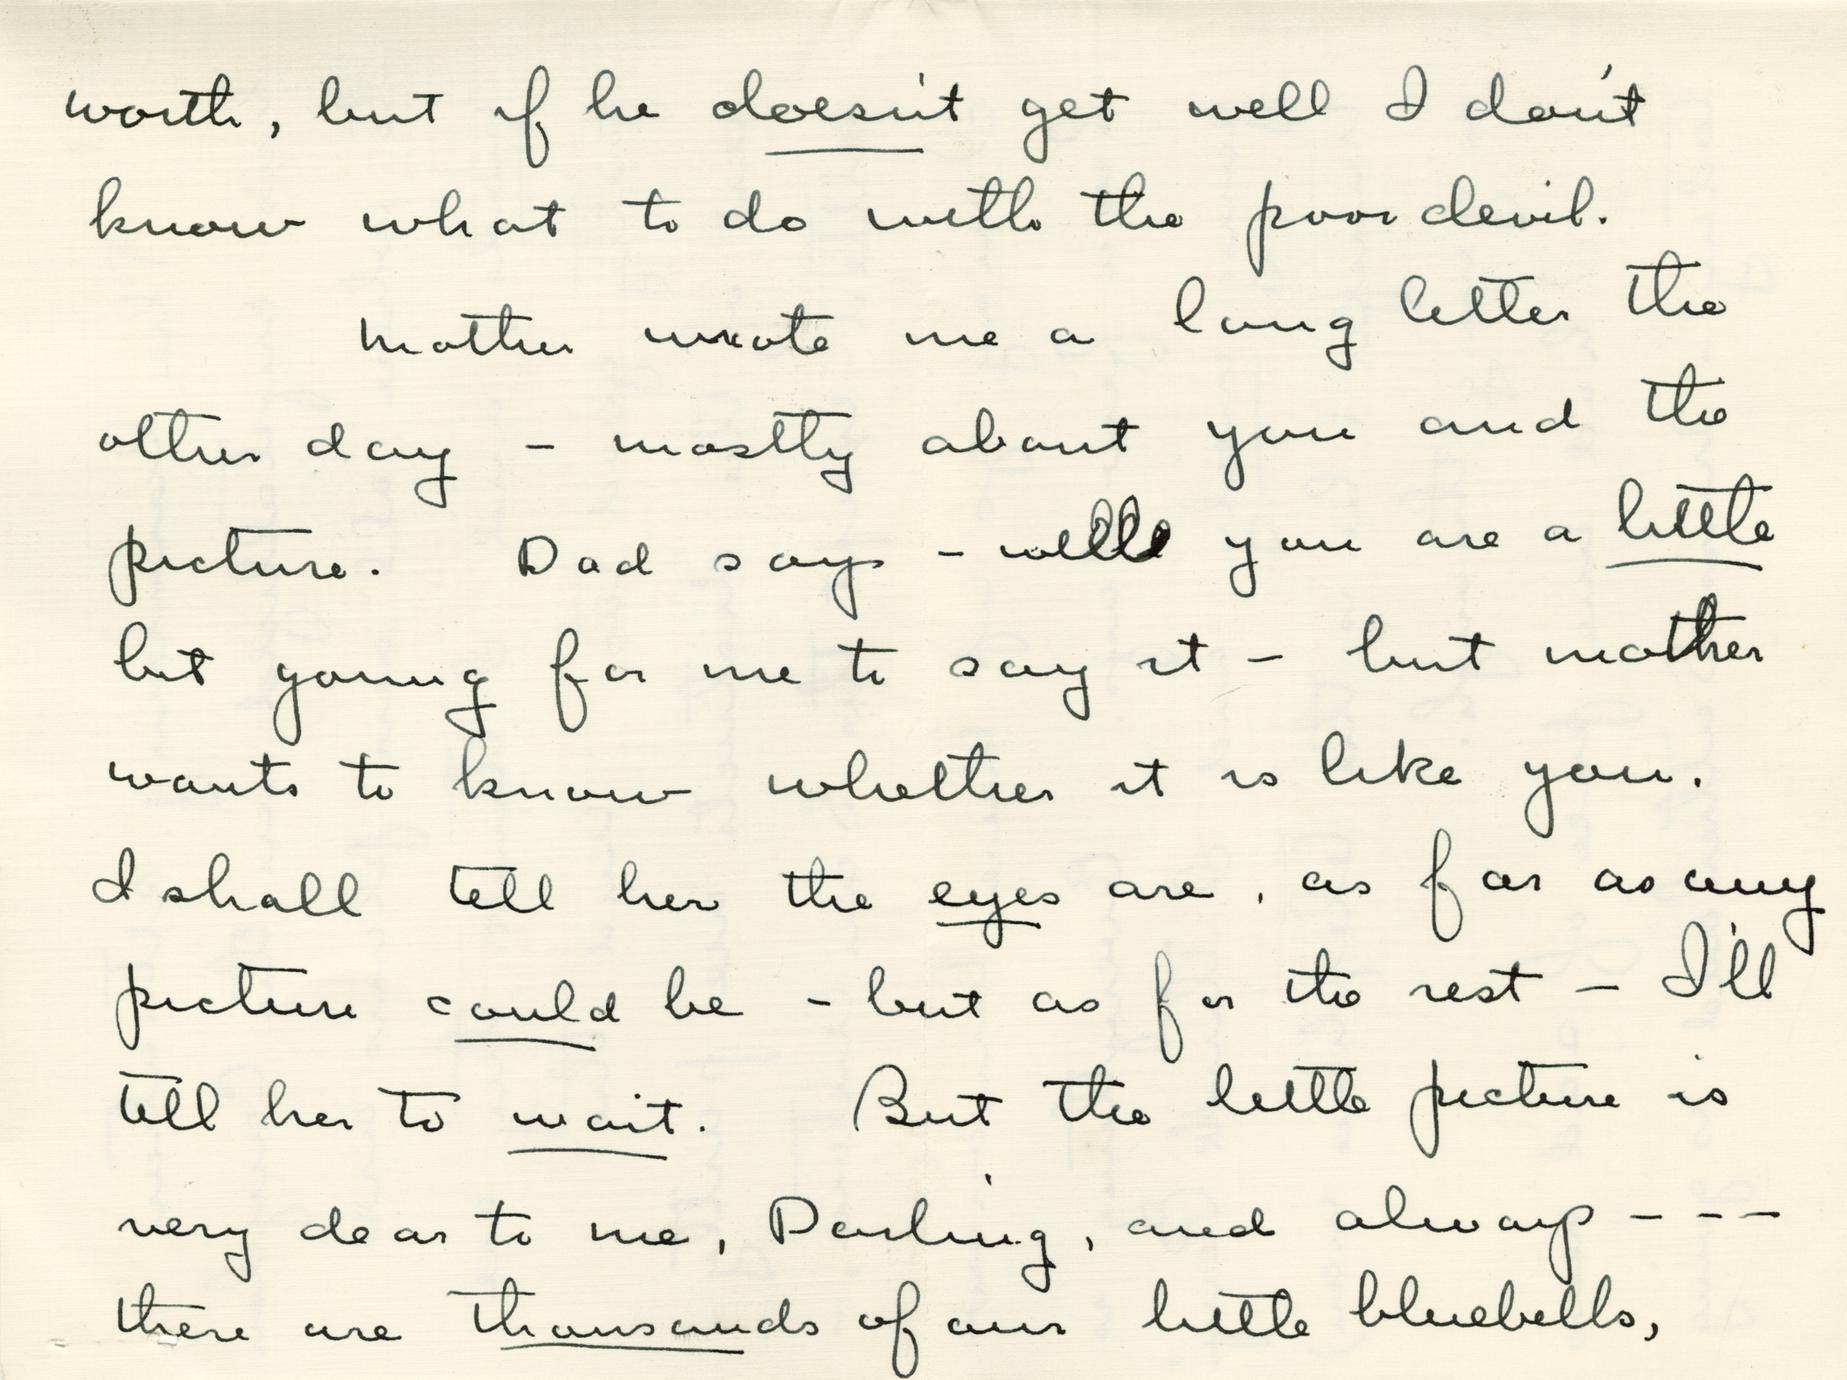 worth, but if he doesn't get well I don't
know what to do with the poor devil.
Mother wrote me a long letter the
other day - mostly about you and the
picture. Dad says - well you are a little
bit young for me to say it - but mother
wants to know whether it is like you.
I shall tell her the eyes are, as far as any
picture could be - but as for the rest - I'll
tell her to wait. But the little picture is
very dear to me, Darling, and always - - -
there are thousands of our little bluebells,